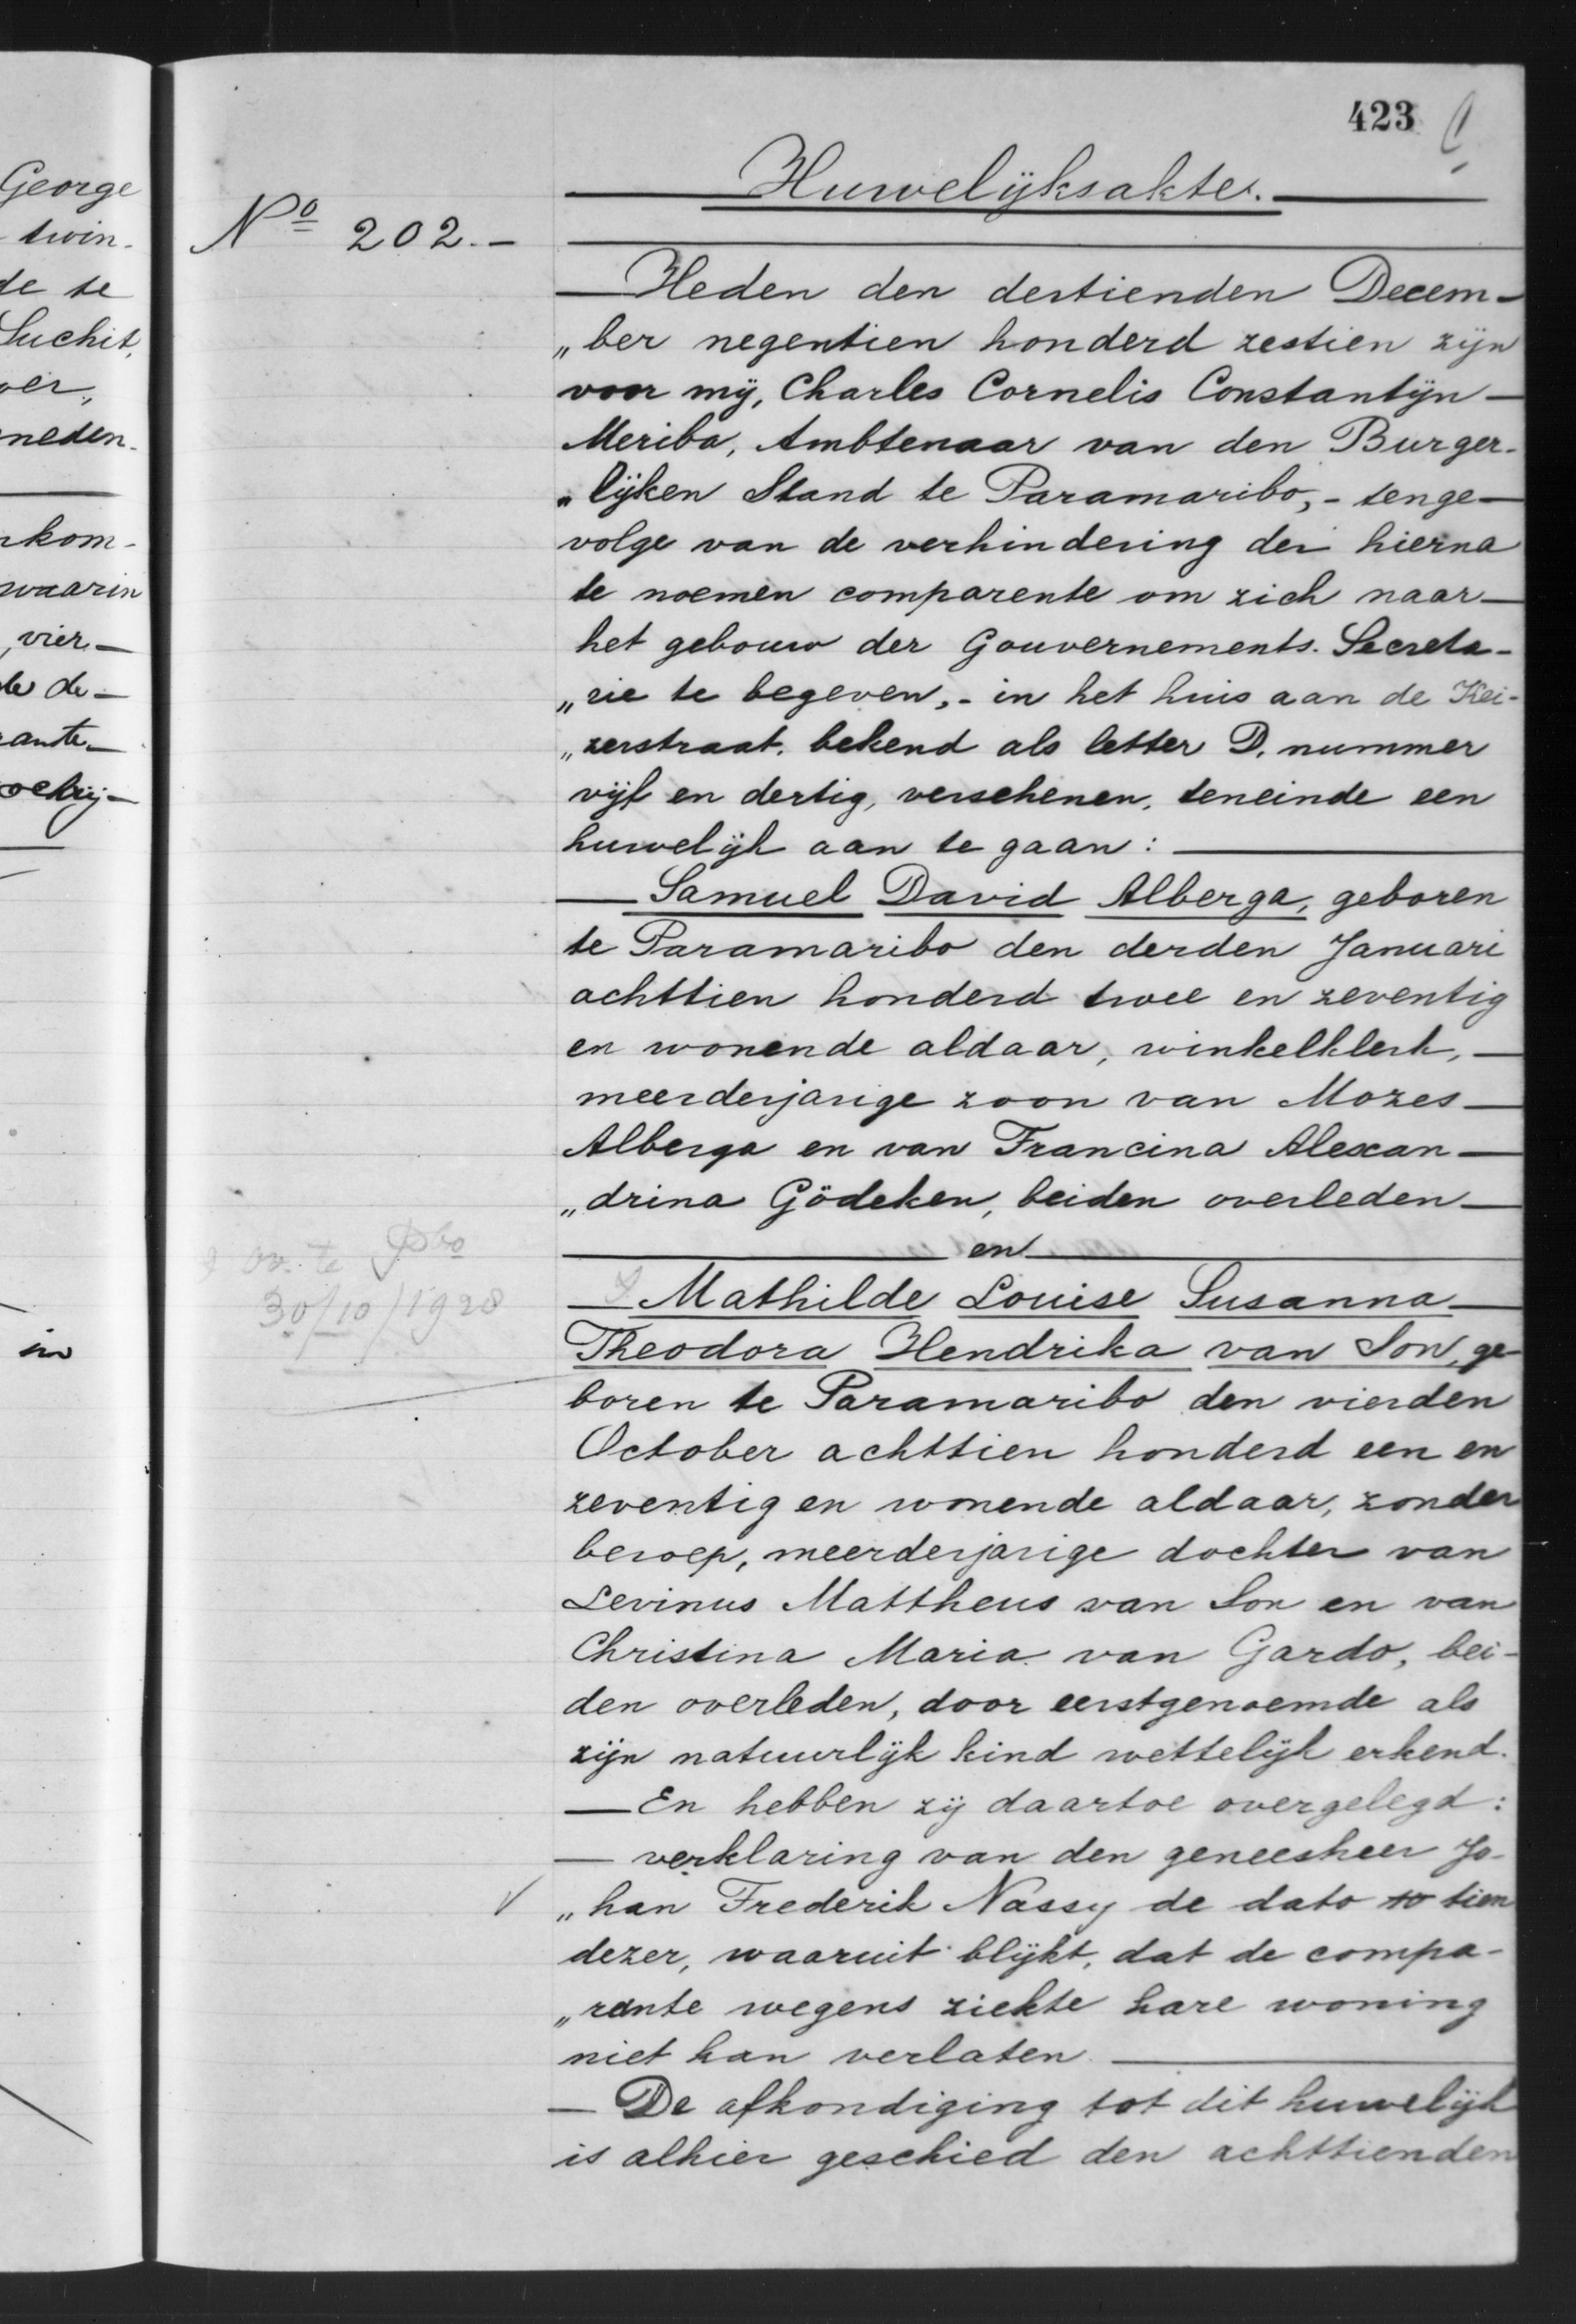 George
twin-
de te
Suchit,
neden.
kom-
waarin
vier-
de-
in
423
Huwelijksakte.
No 202.-
Heden den dertienden Decem-
„ber negentien honderd zestien zijn
voor mij, Charles Cornelis Constantijn
Meriba, Ambtenaar van den Burger-
„lijken Stand te Paramaribo, - tenge-
volge van de verhindering der hierna
te noemen comparente om zich naar
het gebouw der Gouvernements-Secreta-
„rie te begeven, - in het huis aan de Kei-
„zerstraat, bekend als letter D. nummer
vijf en dertig, verschenen, teneinde een
huwelijk aan te gaan:
Samuel David Alberga, geboren
te Paramaribo den derden Januari
achttien honderd twee en zeventig
en wonende aldaar, winkelklerk,
meerderjarige zoon van Mozes
Alberga en van Francina Alexan-
„drina Gödeken, beiden overleden
en
ov. te Pbo
30/10/1928
Mathilde Louise Susanna
Theodora Hendrika van Son, ge-
boren te Paramaribo den vierden
October achttien honderd een en
zeventig en wonende aldaar, zonder
beroep, meerderjarige dochter van
Levinus Mattheus van Son en van
Christina Maria van Gardo, bei-
den overleden, door eerstgenoemde als
zijn natuurlijk kind wettelijk erkend.
En hebben zij daartoe overgelegd:
verklaring van den geneesheer Jo-
„han Frederik Nassy de dato 10 tien
dezer, waaruit blijkt, dat de compa-
„rente wegens ziekte hare woning
niet kan verlaten.
De afkondiging tot dit huwelijk
is alhier geschied den achttienden